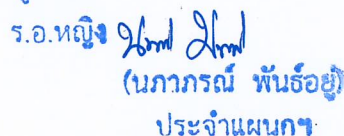 ร.อ.หญิง
(นภาภรณ์ พันธ์อยู่)
ประจำแผนกฯ